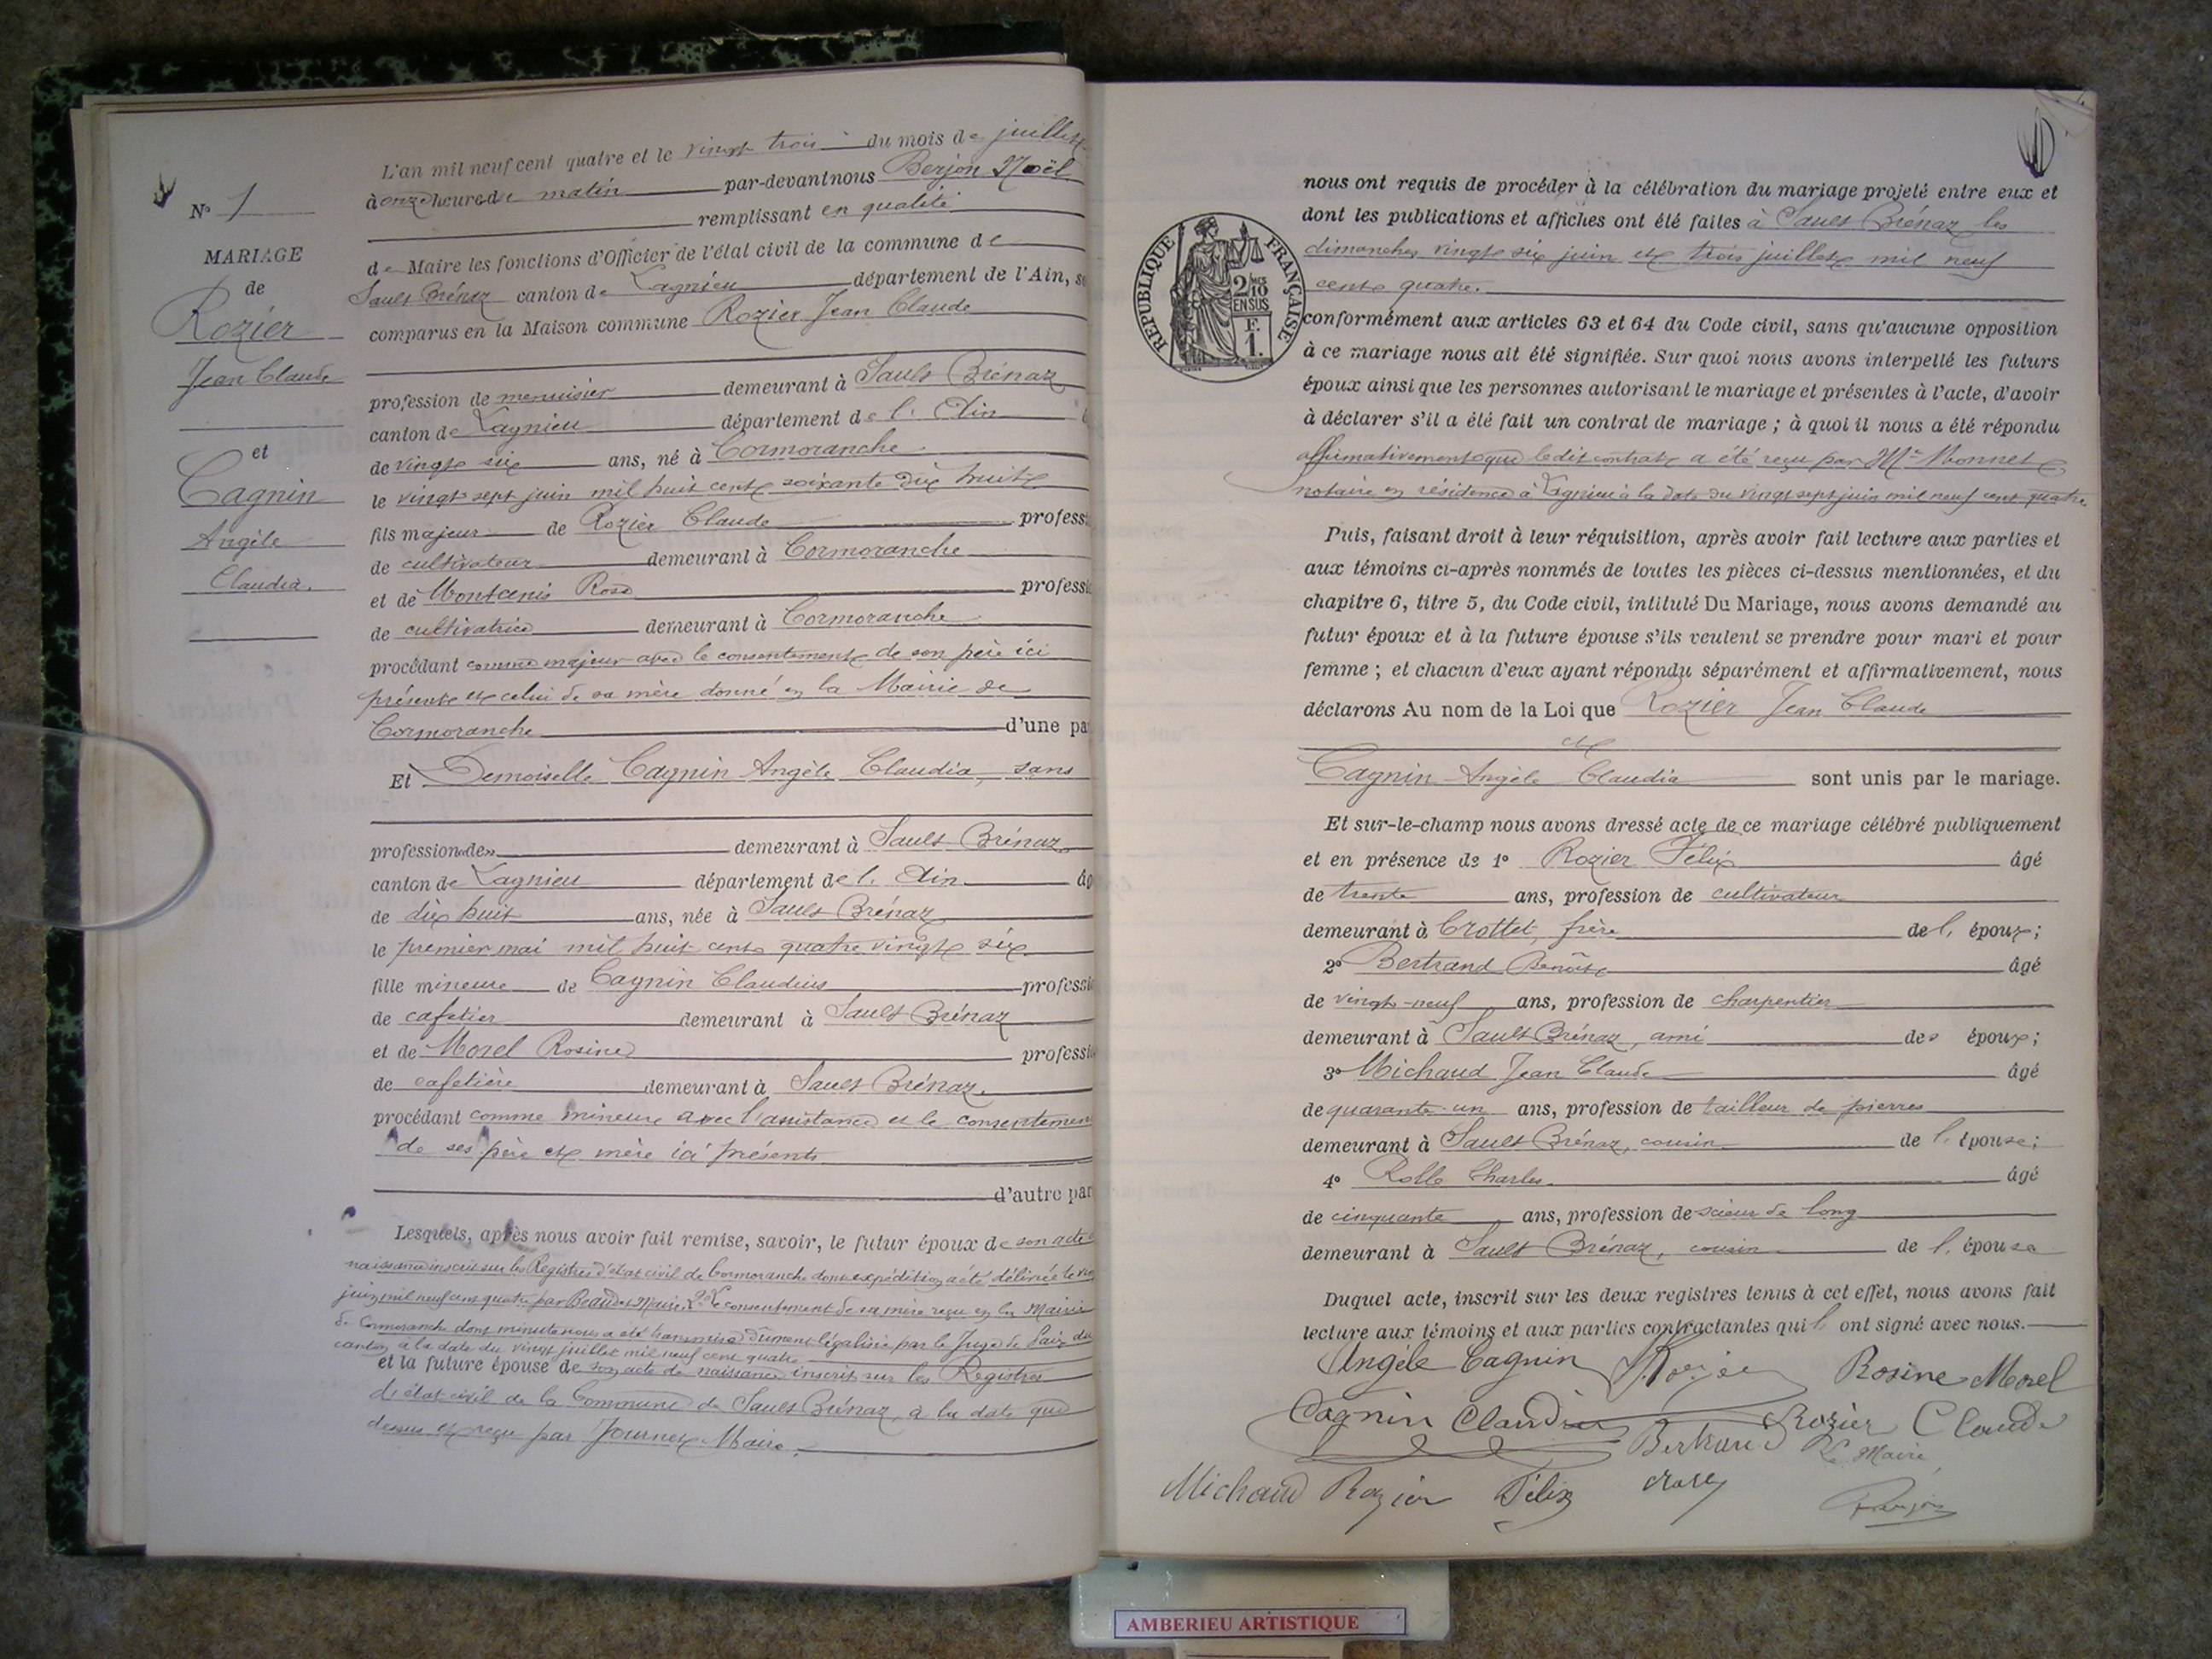 N° 1
MARIAGE
de
Rozier
Jean Claude
et
Cagnin
Angèle
Claudia.
L'an mil neuf cent quatre et le vingt trois du mois de juillet
à onze heures du matin par-devant nous Berjon Noël
remplissant en qualité
de Maire les fonctions d'Officier de l'état civil de la commune de
Sault Brénaz canton de Lagnieu département de l'Ain, s
comparus en la Maison commune Rozier Jean Claude
profession de menuisier demeurant à Sault Brénaz
canton de Lagnieu département de l'Ain
de vingt six ans, né à Cormoranche
le vingt sept juin mil huit cent soixante dix huit
fils majeur de Rozier Claude professi
de cultivateur demeurant à Cormoranche
et de Montcenis Rose professi
de cultivatrice demeurant à Cormoranche
procédant comme majeur avec le consentement de son père ici
présent et celui de sa mère donné en la Mairie de
Cormoranche d'une par
Et Demoiselle Cagnin Angèle Claudia, sans
profession de demeurant à Sault Brénaz
canton de Lagnieu département de l'Ain âg
de dix huit ans, née à Sault Brénaz
le premier mai mil huit cent quatre vingt six
fille mineure de Cagnin Claudius professi
de cafetier demeurant à Sault Brénaz
et de Morel Rosine professi
de cafetière demeurant à Sault Brénaz.
procédant comme mineure avec l'assistance et le consentemen
de ses père et mère ici présents
d'autre par
Lesquels, après nous avoir fait remise, savoir, le futur époux de son acte
naissance inscrit sur les Registres d'état civil de Cormoranche dont expédition a été délivrée le
juin mil neuf cent quatre par Beaudet Maire, 2° Le consentement de sa mère reçu en la Mairie
de Cormoranche dont minute nous a été transmise dûment légalisé par le Juge de Paix du
canton à la date du vingt juillet mil neuf cent quatre
et la future épouse de son acte de naissance inscrit sur les Registres
d'état civil de la Commune de Sault Brénaz, à la date que
dessus et reçu par Journet Maire.
REPUBLIQUE FRANÇAISE
2/10
EN SUS
F.
1.
nous ont requis de procéder à la célébration du mariage projeté entre eux et
dont les publications et affiches ont été faites à Sault Brénaz les
dimanches vingt six juin et trois juillet mil neuf
cent quatre.
conformément aux articles 63 et 64 du Code civil, sans qu'aucune opposition
à ce mariage nous ait été signifiée. Sur quoi nous avons interpellé les futurs
époux ainsi que les personnes autorisant le mariage et présentes à l'acte, d'avoir
à déclarer s'il a été fait un contrat de mariage ; à quoi il nous a été répondu
affirmativement que ledit contrat a été reçu par Me Monnet
notaire en résidence à Lagnieu à la date du vingt sept juin mil neuf cent quatre
Puis, faisant droit à leur réquisition, après avoir fait lecture aux parties et
aux témoins ci-après nommés de toutes les pièces ci-dessus mentionnées, et du
chapitre 6, titre 5, du Code civil, intitulé Du Mariage, nous avons demandé au
futur époux et à la future épouse s'ils veulent se prendre pour mari et pour
femme ; et chacun d'eux ayant répondu séparément et affirmativement, nous
déclarons Au nom de la Loi que Rozier Jean Claude
et
Cagnin Angèle Claudia sont unis par le mariage.
Et sur-le-champ nous avons dressé acte de ce mariage célébré publiquement
et en présence de 1° Rozier Félix âgé
de trente ans, profession de cultivateur
demeurant à Crottet, frère de l'époux;
2° Bertrand Benoît âgé
de vingt-neuf ans, profession de charpentier
demeurant à Sault Brénaz, ami des époux;
3° Michaud Jean Claude âgé
de quarante un ans, profession de tailleur de pierres
demeurant à Sault Brénaz, cousin de l'épouse;
4° Rolle Charles âgé
de cinquante ans, profession de scieur de long
demeurant à Sault Brénaz, cousin de l'épouse
Duquel acte, inscrit sur les deux registres tenus à cet effet, nous avons fait
lecture aux témoins et aux parties contractantes qui ont signé avec nous.
Angèle Cagnin Rozier Rosine Morel
Cagnin Claudius Bertrand Rozier Claude
Le Maire
Michaud Rozier Félix Rolle Berjon
AMBERIEU ARTISTIQUE